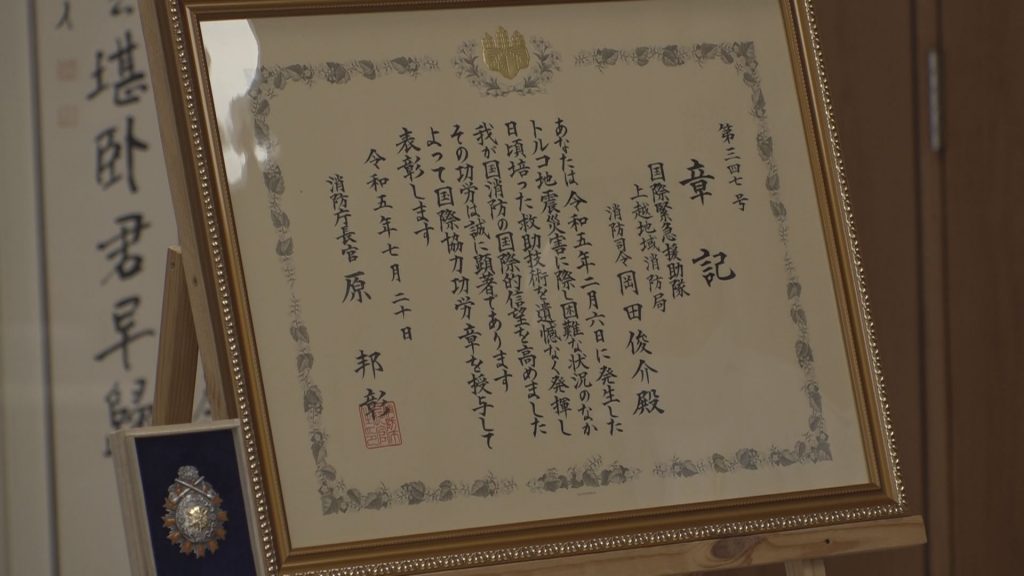 第三四七号
章記
国際緊急援助隊
上越地域消防局
消防司令 岡田俊介殿
あなたは令和五年二月六日に発生した
トルコ地震災害に際し困難な状況のなか
日頃培った救助技術を遺憾なく発揮し
我が国消防の国際的信望を高めました
その功労は誠に顕著であります
よって国際協力功労章を授与して
表彰します
令和五年七月二十日
消防庁長官 原 邦彰
堪卧君早歸